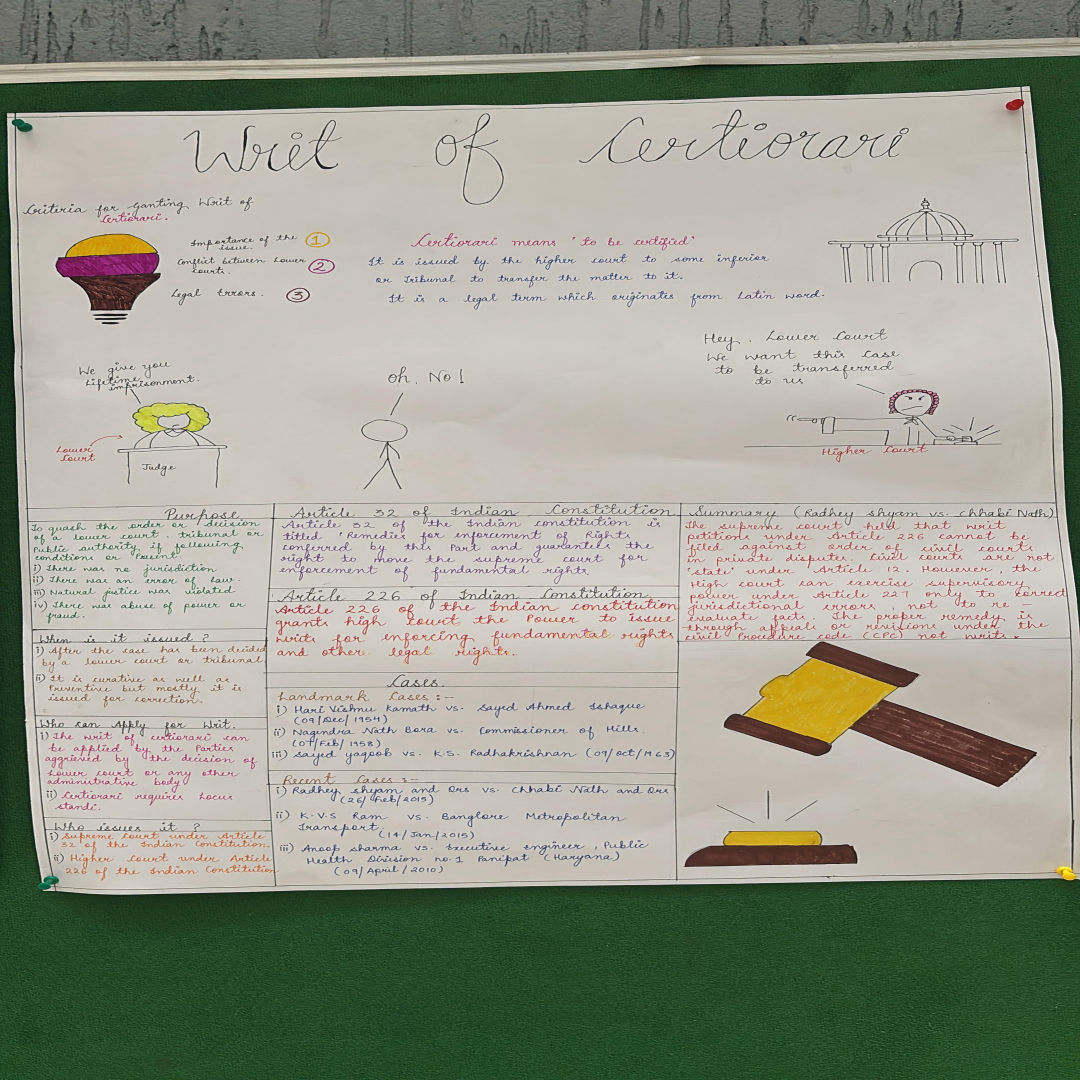 Writ of Certiorari
Criteria for Ganting Writ of
Certiorari.
Importance of the 1
issue.
Conflict between Lower 2
courts.
Legal Errors. 3
Certiorari means 'to be certified'
It is issued by the higher court to some inferior
or Tribunal to transfer the matter to it.
It is a legal term which originates from Latin word.
We give you
Lifetime
imprisonment.
Lower
Court
Judge
Oh, No!
Hey, Lower Court
We want this case
to be transferred
to us
Higher Court
Purpose
To quash the order or decision
of a lower court, tribunal or
Public authority if following
conditions or
i) There was no jurisdiction
ii) There was an error of Law.
iii) Natural justice was violated
iv) There was abuse of power or
fraud.
When is it issued?
i) After the case has been decided
by a lower court or tribunal
ii) It is curative as well as
Preventive but mostly it is
issued for correction.
Who can Apply for Writ.
i) The writ of certiorari can
be applied by the Parties
aggrieved by the decision of
Lower court or any other
administrative body
ii) Certiorari requires Locus
standi.
Who issues it?
i) Supreme Court under Article
32 of the Indian Constitution.
ii) Higher Court under Article
226 of the Indian Constitution
Article 32 of Indian Constitution
Article 32 of the Indian constitution is
titled 'Remedies for enforcement of Rights
conferred by this Part and guarantees the
right to move the supreme court for
enforcement of fundamental rights.
Article 226 of Indian Constitution
Article 226 of the Indian constitution
grants high court the Power to issue
writs for enforcing fundamental rights
and other legal rights.
Cases.
Landmark Cases :-
i) Hari Vishnu Kamath vs. Sayed Ahmed Ishaque
(09/Dec/1954)
ii) Nagendra Nath Bora vs. Commissioner of Hills.
(07/Feb/1958)
iii) Sayed yaqoob vs. K.S. Radhakrishnan (09/oct/1963)
Recent Cases :-
i) Radhey shyam and Ors vs. Chhabi Nath and Ors
(26/Feb/2015)
ii) K.V.S Ram vs. Banglore Metropolitan
Transport
(14/Jan/2015)
iii) Anoop sharma vs. Executive engineer, Public
Health Division no.1 Panipat (Haryana)
(09/April/2010)
Summary (Radhey shyam vs. Chhabi Nath)
The supreme court held that writ
petitions under Article 226 cannot be
filed against order of civil courts
in private disputes. Civil courts are not
'state' under Article 12. However, the
High court can exercise supervisory
power under Article 227 only to correct
jurisdictional errors, not to re-
evaluate facts. The proper remedy is
through appeals or revisions under the
Civil Procedure code (CPC) not writs.